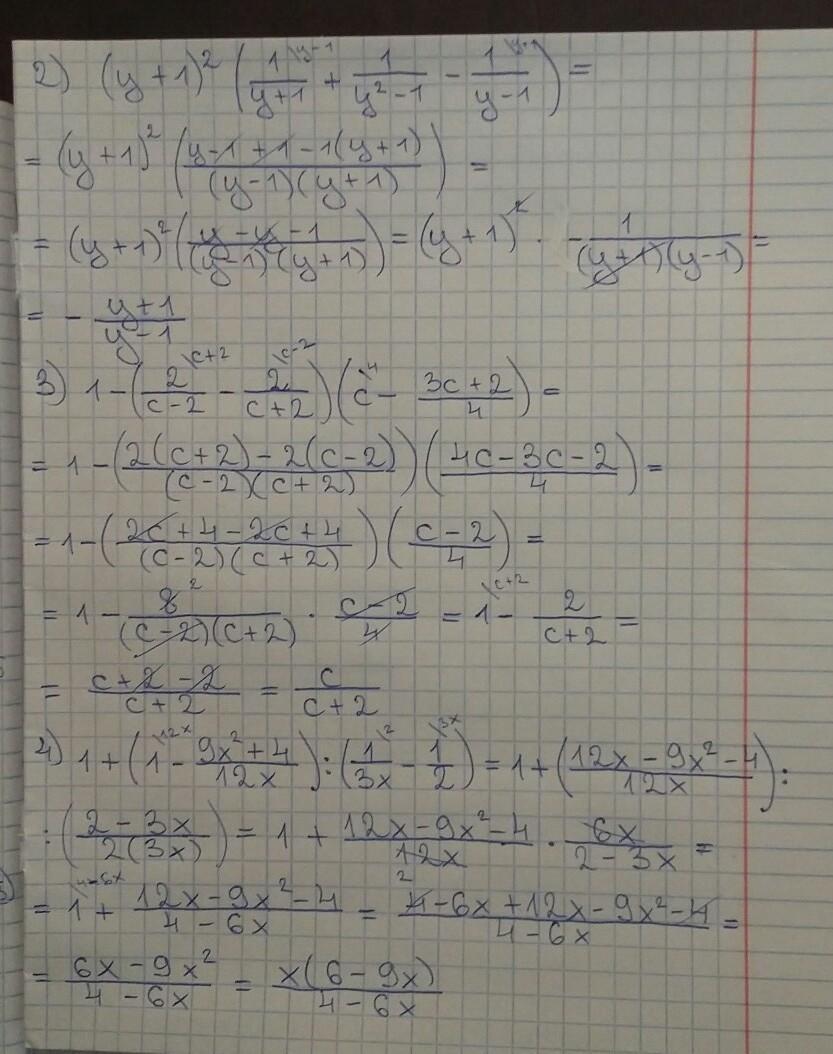 2) (y+1)² (1/(y+1) \y-1 + 1/(y²-1) - 1/(y-1) \y+1) =
= (y+1)² ((y-1+1-1(y+1))/((y-1)(y+1))) =
= (y+1)² ((y-y-1)/((y-1)(y+1))) = (y+1)² · -1/((y+1)(y-1)) =
= - (y+1)/(y-1)
3) 1-(2/(c-2) \c+2 - 2/(c+2) \c-2)(c \4 - (3c+2)/4) =
= 1-((2(c+2)-2(c-2))/((c-2)(c+2)))((4c-3c-2)/4) =
= 1-((2c+4-2c+4)/((c-2)(c+2)))((c-2)/4) =
= 1 - 8 2/((c-2)(c+2)) · (c-2)/4 = 1 \c+2 - 2/(c+2) =
= (c+2-2)/(c+2) = c/(c+2)
4) 1+(1 \12x - (9x²+4)/12x):(1/3x \2 - 1/2 \3x) = 1+((12x-9x²-4)/12x):
:((2-3x)/(2(3x))) = 1 + (12x-9x²-4)/12x 2 · 6x/(2-3x) =
= 1 \4-6x + (12x-9x²-4)/(4-6x) = (4-6x+12x-9x²-4)/(4-6x) =
= (6x-9x²)/(4-6x) = x(6-9x)/(4-6x)